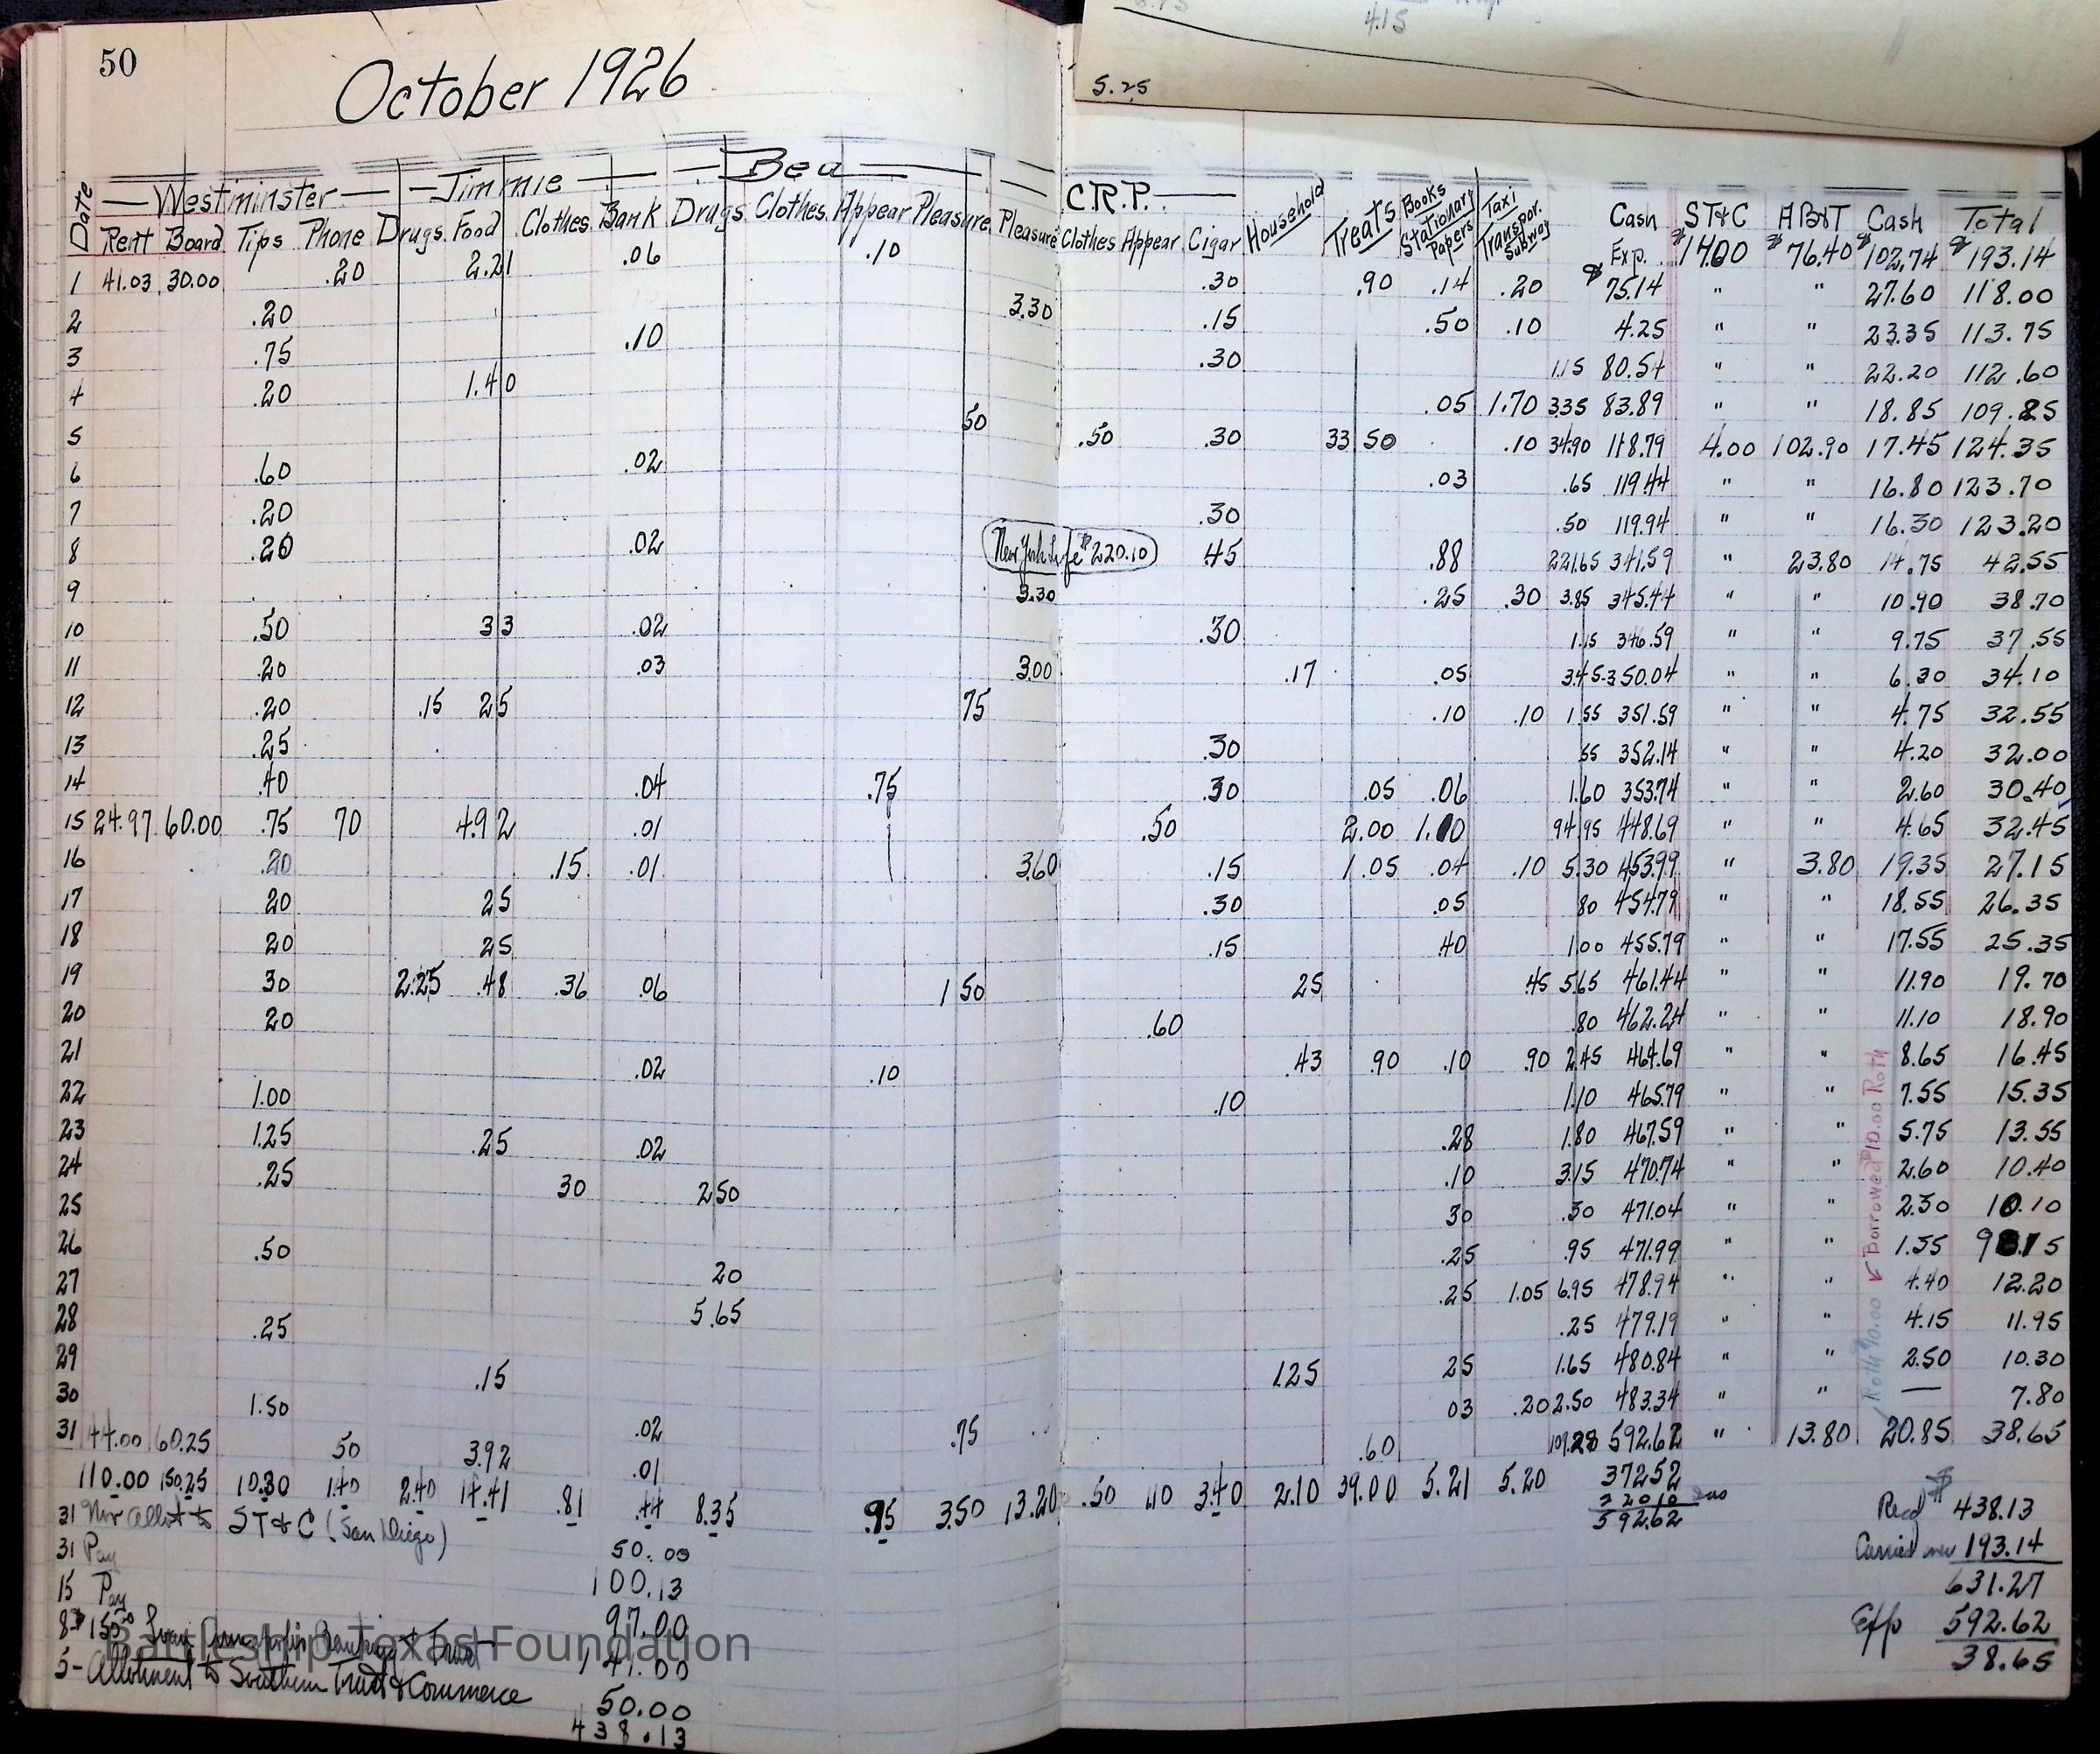 4.15
5.25
50
October 1926
Date Westminster Jimmie Bea C.R.P. Household Treats Books Stationary Papers Taxi Transpor. Subway Cash Exp. ST&C AB&T Cash Total
Rent Board Tips Phone Drugs Food Clothes Bank Drugs Clothes Appear Pleasure Pleasure Clothes Appear Cigar
$14.00 $76.40 $102.74 $193.14
1 41.03 30.00 .20 2.21 .06 .10 .30 .90 .14 .20 $75.14 " " 27.60 118.00
2 .20 3.30 .15 .50 .10 4.25 " " 23.35 113.75
3 .75 .10 .30 1.15 80.54 " " 22.20 112.60
4 .20 1.40 .05 1.70 3.35 83.89 " " 18.85 109.25
5 50 .50 .30 33.50 .10 34.90 118.79 4.00 102.90 17.45 124.35
6 .60 .02 .03 .65 119.44 " " 16.80 123.70
7 .20 .30 .50 119.94 " " 16.30 123.20
8 .20 .02 New York Life $220.10 .45 .88 221.65 341.59 " 23.80 14.75 42.55
9 3.30 .25 .30 3.85 345.44 " " 10.90 38.70
10 .50 33 .02 .30 1.15 346.59 " " 9.75 37.55
11 .20 .03 3.00 .17 .05 3.45 350.04 " " 6.30 34.10
12 .20 .15 25 75 .10 .10 1.55 351.59 " " 4.75 32.55
13 .25 .30 55 352.14 " " 4.20 32.00
14 .40 .04 .75 .30 .05 .06 1.60 353.74 " " 2.60 30.40
15 24.97 60.00 .75 70 4.92 .01 .50 2.00 1.10 94.95 448.69 " " 4.65 32.45
16 .20 .15 .01 3.60 .15 1.05 .04 .10 5.30 453.99 " 3.80 19.35 27.15
17 20 25 .30 .05 80 454.79 " " 18.55 26.35
18 20 25 .15 40 1.00 455.79 " " 17.55 25.35
19 30 2.25 .48 .36 .06 1 50 25 .45 5.65 461.44 " " 11.90 19.70
20 20 .60 .80 462.24 " " 11.10 18.90
21 .02 .10 .43 .90 .10 .90 2.45 464.69 " " 8.65 16.45
22 1.00 .10 1.10 465.79 " " 7.55 15.35
23 1.25 .25 .02 .28 1.80 467.59 " " 5.75 13.55
24 .25 30 2.50 .10 3.15 470.74 " " 2.60 10.40
25 30 .30 471.04 " " 2.30 10.10
26 .50 .25 .95 471.99 " " 1.35
27 20 .25 1.05 6.95 478.94 " " 4.40 12.20
28 .25 5.65 .25 479.19 " " 4.15 11.95
29 .15 1.25 25 1.65 480.84 " " 2.50 10.30
30 1.50 03 .20 2.50 483.34 " " — 7.80
31 44.00 60.25 50 3.92 .02 .75 .60 109.28 592.62 " 13.80 20.85 38.65
.01
110.00 150.25 10.30 1.40 2.40 14.41 .81 .44 8.35 .95 3.50 13.20 .50 1.10 3.40 2.10 39.00 5.21 5.20 372.52
220.10 Ins
592.62
Borrowed $10.00 Roth
Roth $10.00
31 Nov allot to ST&C (San Diego) 50.00
31 Pay 100.13
15 Pay 97.00
8 - $150.00 Loan Annapolis Banking & Trust 141.00
5 - Allotment to Southern Trust & Commerce 50.00
438.13
Recd $438.13
Carried over 193.14
631.27
Exp 592.62
38.65
Battleship Texas Foundation